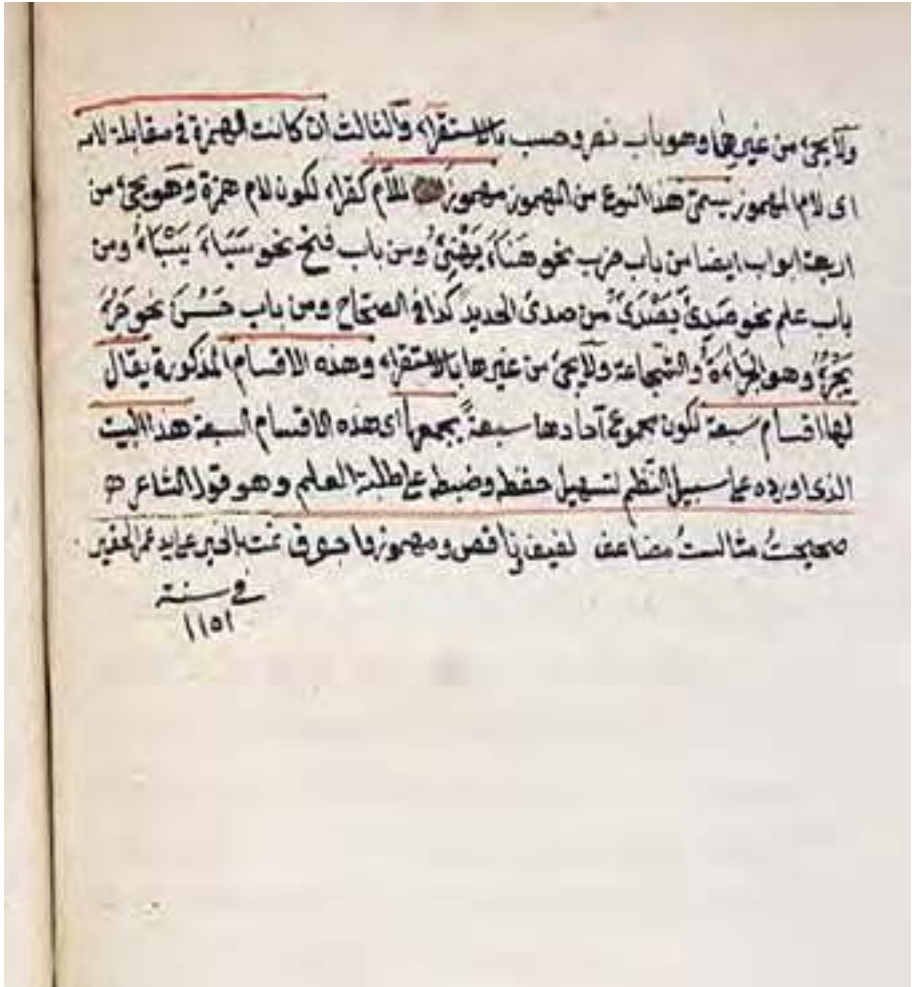 ولا يجئ من غيرها وهو باب نصر وحسب بالاستقراء والثالث ان كانت الهمزة في مقابلة لامه
اى لام المهموز يسمى هذا النوع من المهموز مهموز اللام كقراء لكون لام همزة وهو يجئ من
اربعة ابواب ايضا من باب ضرب نحو هَنَاَءَ يَهْنِئُ ومن باب فتح نحو سَبَاءَ يَسْبَاءُ ومن
باب علم نحو صَدِئَ يَصْدَئُ من صدئ الحديد كذا في الصحاح ومن باب حَسُنَ نحو جَرُءَ
يَجْرُءُ وهو الجراءة والشجاعة ولا يجئ من غيرها بالاستقراء وهذه الاقسام المذكورة يقال
لها اقسام سبعة لكون مجموع آحادها سبعةً يجمعها اى هذه الاقسام السبعة هذا البيت
الذى اورده على سبيل النَّظم لتسهيل حفظه وضبطه على طلبة العلم وهو قول الشاعر
صحيحست مثالست مضاعف لفيف ناقص ومهموز واجوف تمت بالخير على يد عمر الحقير
في سنة
١١٥١